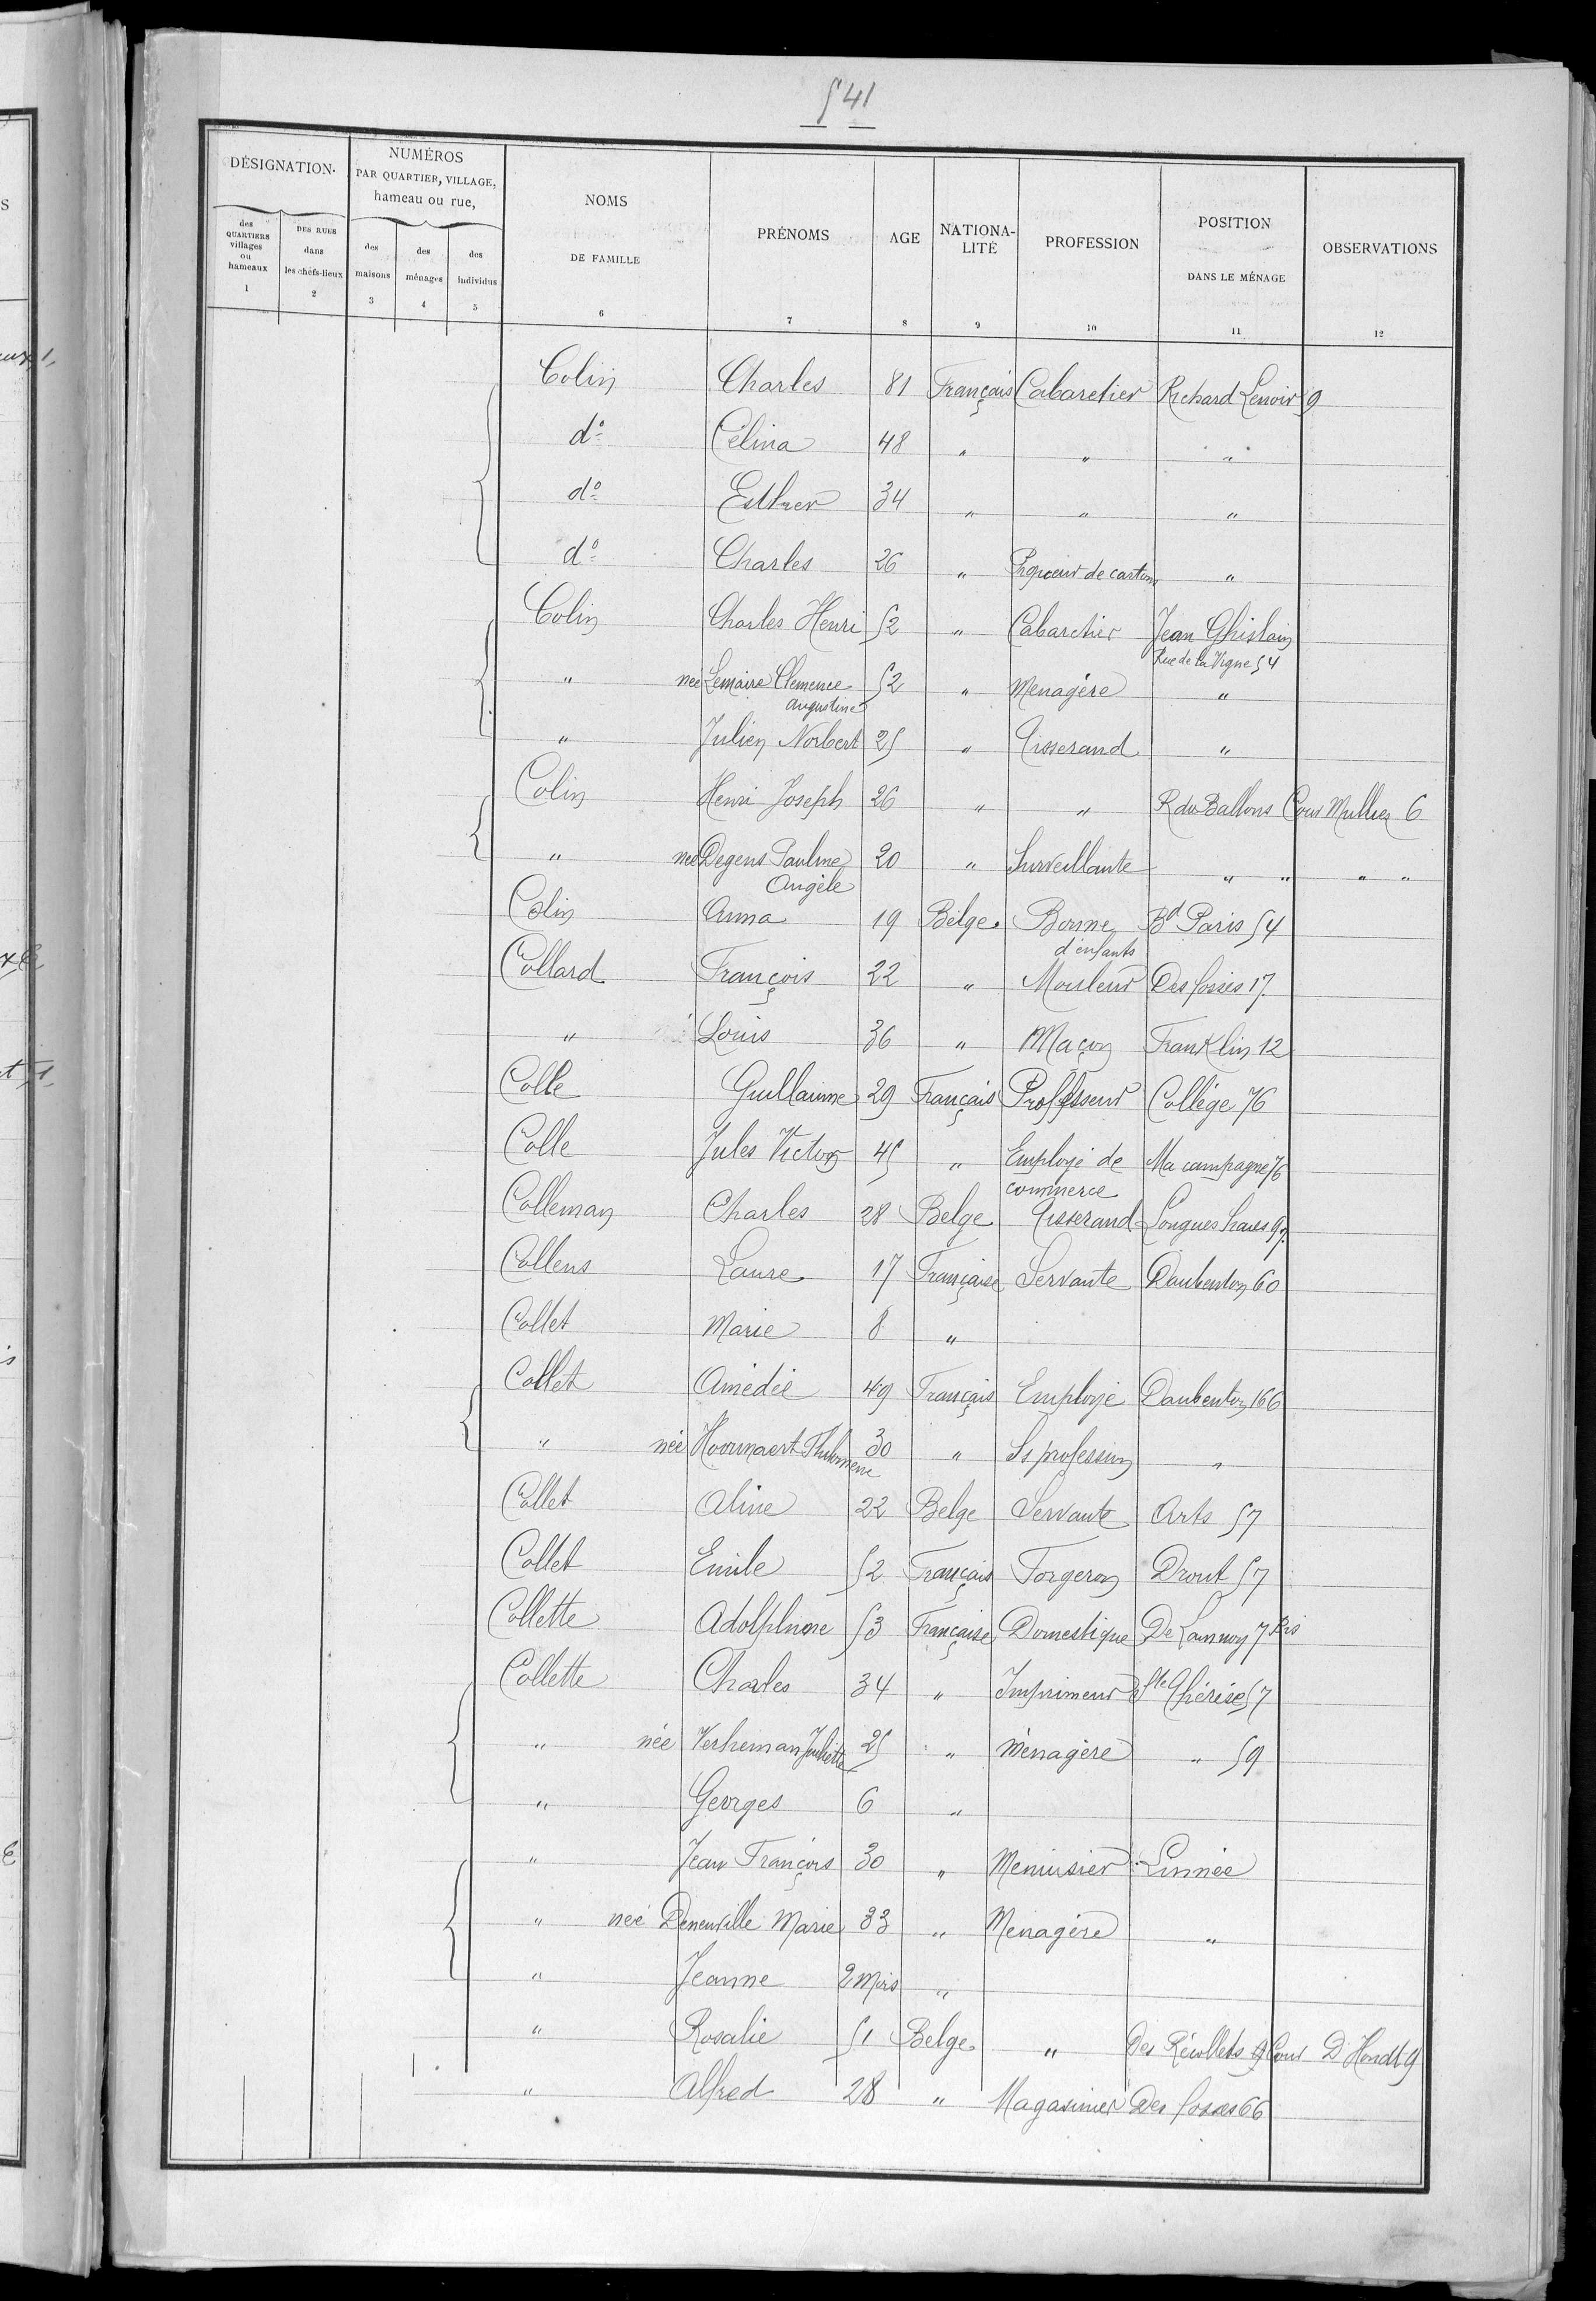 541
DÉSIGNATION. NUMÉROS PAR QUARTIER, VILLAGE, hameau ou rue, NOMS DE FAMILLE PRÉNOMS AGE NATIONALITÉ PROFESSION POSITION DANS LE MÉNAGE OBSERVATIONS
des QUARTIERS villages ou hameaux DES RUES dans les chefs-lieux des maisons des ménages des individus
1 2 3 4 5 6 7 8 9 10 11 12
Colin Charles 81 Français Cabaretier Richard Lenoir 9
do Célina 48 " " "
do Esther 34 " " "
do Charles 26 " de carton "
Colin Charles Henri 52 " Cabaretier Jean Ghislain
Rue de la Vigne 54
" née Lemaire Clemence 52 " Menagère "
Augustine
" Julien Norbert 25 " Tisserand "
Colin Henri Joseph 26 " " R du Ballons Cour Mullier 6
" née Degens Pauline 20 " Surveillante " " " "
Angèle
Colin Anna 19 Belge Bonne Bd Paris 54
d'enfants
Collard François 22 " Mouleur Des fossés 17
" Louis 36 " Maçon Franklin 12
Colle Guillaume 29 Français Professeur Collège 76
Colle Jules Victor 45 " Employé de Ma campagne 76
commerce
Colleman Charles 28 Belge Tisserand Longues haies 97
Collens Laure 17 Française Servante Daubenton 60
Collet Marie 8 "
Collet Amédée 49 Français Employé Daubenton 166
" née Hoornaert Philomène 30 " Ss profession "
Collet Aline 22 Belge Servante Arts 57
Collet Emile 52 Français Forgeron Drouot 57
Collette Adolphine 53 Française Domestique De Lannoy 7 bis
Collette Charles 34 " Imprimeur Ste Thérèse 57
" née Verheman Juliette 25 " ménagère " 59
" Georges 6 "
" Jean François 30 " Menuisier Linnée
" née Deneuville Marie 33 " Menagère "
" Jeanne 2 mois "
" Rosalie 51 Belge " Des Récollets 9 Cour D'Hondt 9
" Alfred 28 " Magasinier Des fosses 66